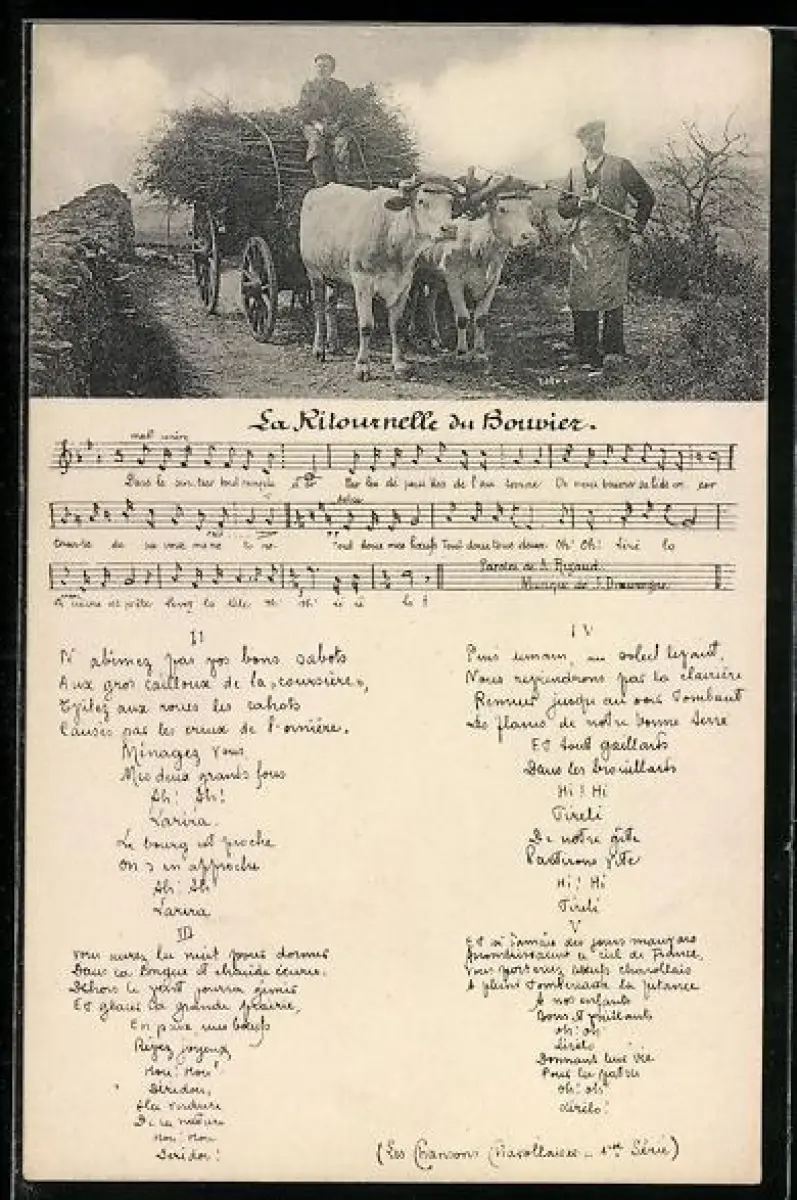 La Ritournelle du Bouvier.
Dans le tout rempli d'or Par les de l'an On
de sa voix Tout doux mes bœufs Tout doux tout doux Oh! Oh! Liré lo
la tête oh! oh! lo!
Paroles de Rigaud.
Musique de J.
II
N'abîmez pas vos bons sabots
Aux gros cailloux de la „coursière",
Evitez aux roues les cahots
Causés par les creux de l'ornière.
Ménagez vous
Mes deux grands fous
Ah! Ah!
Larira.
Le bourg est proche
On s'en approche
Ah! Ah!
Larira
III
Vous aurez la nuit pour dormir
Dans la longue et chaude écurie.
Dehors le vent pourra gémir
Et glacer la grande prairie,
En paix mes bœufs
Rêvez joyeux
Hou! Hou!
Déridou,
A la verdure
De la nature
Hou! Hou
Deridou!
IV
Puis demain, au soleil levant,
Nous reprendrons par la clairière
Remuer jusqu'au soir tombant
Les flancs de notre bonne terre
Et tout gaillards
Dans les brouillards
Hi! Hi
Tireli
De notre gîte
Partirons vite
Hi! Hi
Tireli
V
Et si jamais des jours mauvais
le ciel de France,
Vous porterez bœufs charollais
A pleins tombereaux la pitance
A nos enfants
Bons et vaillants
Oh! oh!
Lirelo
Donnant leur vie
Pour la patrie
Oh! oh!
Lirelo!
(Les Chansons Charollaises - 1re Série)